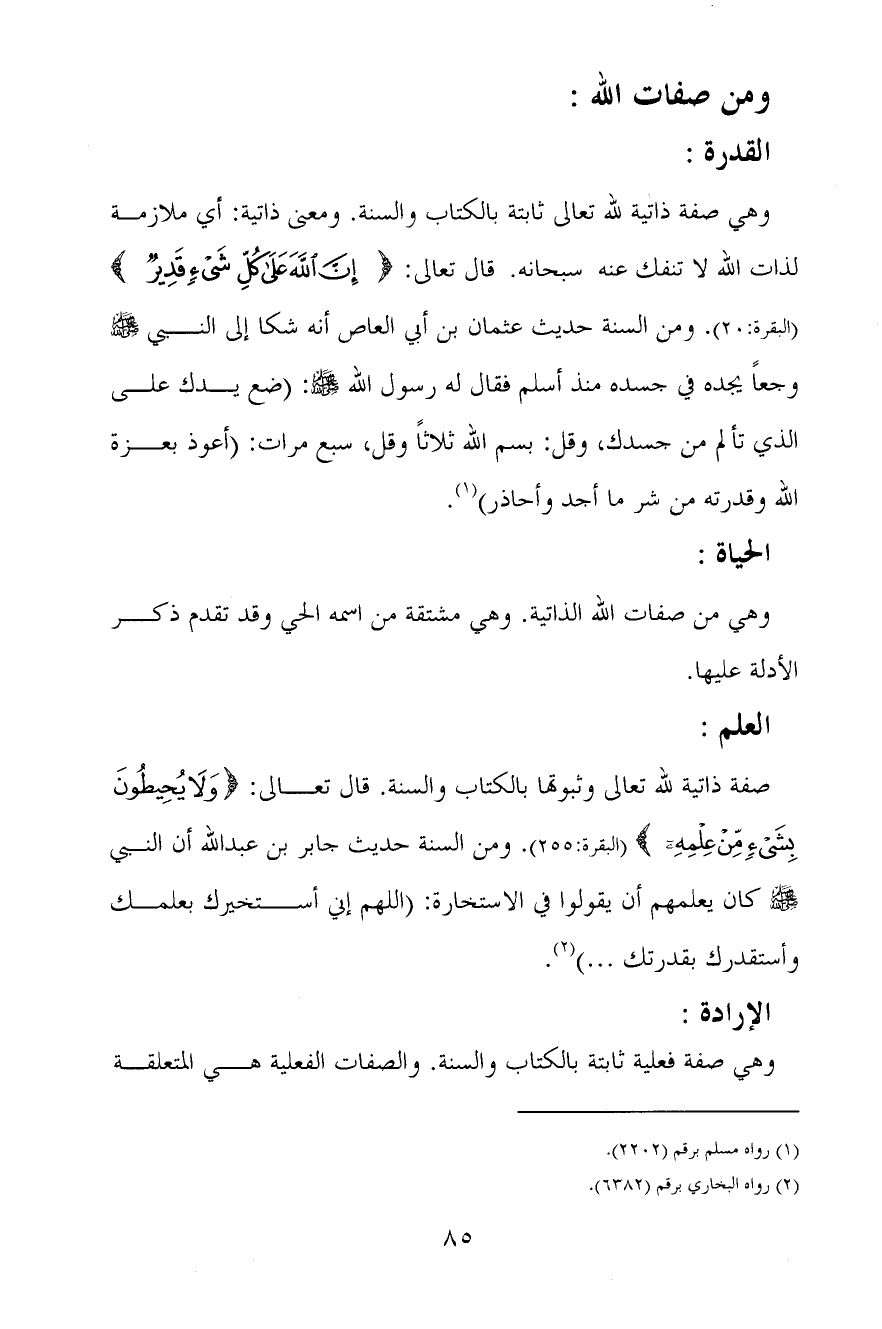 ومن صفات الله :
القدرة :
وهي صفة ذاتية لله تعالى ثابتة بالكتاب والسنة. ومعنى ذاتية: أي ملازمة
لذات الله لا تنفك عنه سبحانه. قال تعالى: ﴿ إِنَّ ٱللَّهَ عَلَىٰ كُلِّ شَىْءٍ قَدِيرٌ ﴾
(البقرة:٢٠). ومن السنة حديث عثمان بن أبي العاص أنه شكا إلى النبي ﷺ
وجعاً يجده في جسده منذ أسلم فقال له رسول الله ﷺ: (ضع يدك على
الذي تألم من جسدك، وقل: بسم الله ثلاثاً وقل، سبع مرات: (أعوذ بعزة
الله وقدرته من شر ما أجد وأحاذر)(١).
الحياة :
وهي من صفات الله الذاتية. وهي مشتقة من اسمه الحي وقد تقدم ذكر
الأدلة عليها.
العلم :
صفة ذاتية لله تعالى وثبوتها بالكتاب والسنة. قال تعالى: ﴿ وَلَا يُحِيطُونَ
بِشَىْءٍ مِّنْ عِلْمِهِۦٓ ﴾ (البقرة:٢٥٥). ومن السنة حديث جابر بن عبدالله أن النبي
ﷺ كان يعلمهم أن يقولوا في الاستخارة: (اللهم إني أستخيرك بعلمك
وأستقدرك بقدرتك ...)(٢).
الإرادة :
وهي صفة فعلية ثابتة بالكتاب والسنة. والصفات الفعلية هي المتعلقة
(١) رواه مسلم برقم (٢٢٠٢).
(٢) رواه البخاري برقم (٦٣٨٢).
٨٥